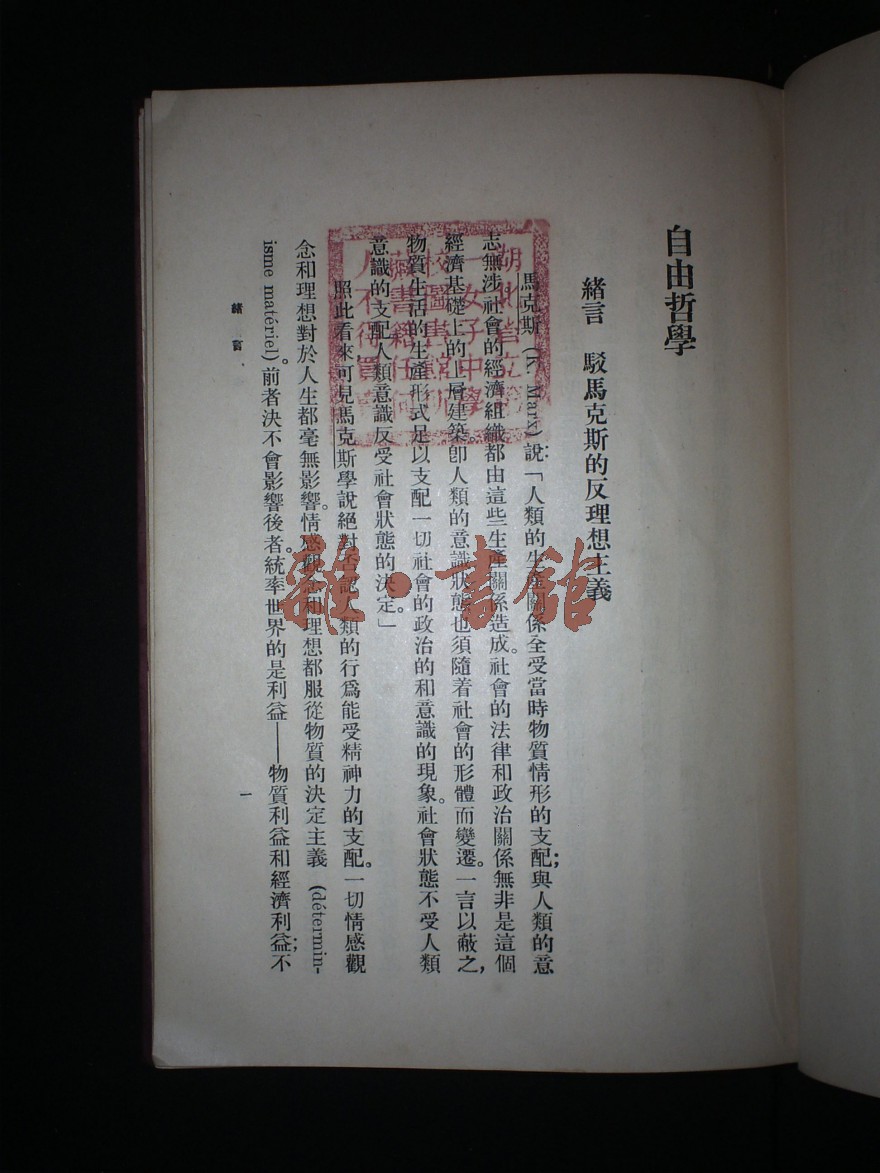 自由哲學
緒言　駁馬克斯的反理想主義
馬克斯 (K. Marx) 說：「人類的生產關係全受當時物質情形的支配；與人類的意
志無涉社會的經濟組織都由這些生產關係造成。社會的法律和政治關係無非是這個
經濟基礎上的上層建築。卽人類的意識狀態也須隨着社會的形體而變遷。一言以蔽之，
物質生活的生產形式足以支配一切社會的政治的和意識的現象。社會狀態不受人類
意識的支配人類意識反受社會狀態的決定。」
照此看來可見馬克斯學說絕對否認人類的行爲能受精神力的支配。一切情感觀
念和理想對於人生都毫無影響。情感觀念和理想都服從物質的決定主義 (détermin-
isme matériel)。前者決不會影響後者。統率世界的是利益——物質利益和經濟利益；不
緒言
一
湖北省立第
一女子中學
校圖書館所
藏書籍任何
人不得買賣
雜·書館